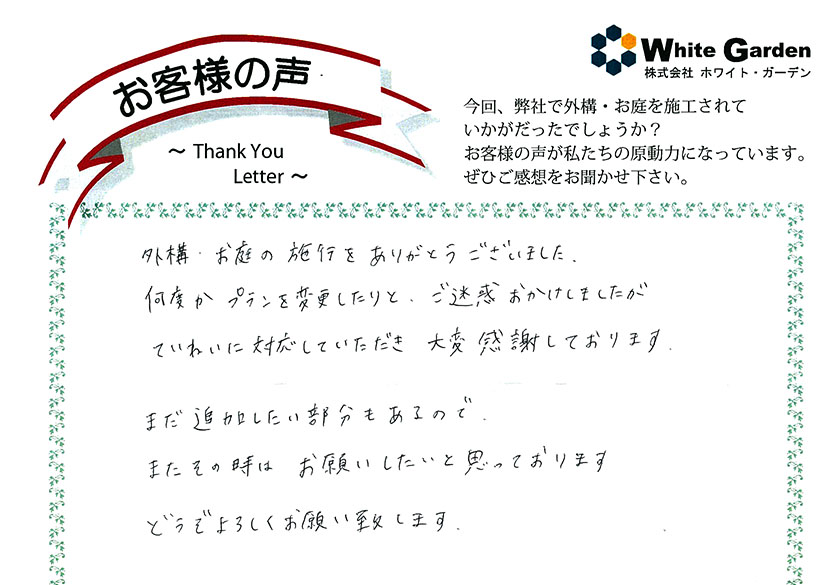 お客様の声
～ Thank You
Letter ～
White Garden
株式会社 ホワイト・ガーデン
今回、弊社で外構・お庭を施工されて
いかがだったでしょうか？
お客様の声が私たちの原動力になっています。
ぜひご感想をお聞かせ下さい。
外構・お庭の施行をありがとうございました.
何度かプランを変更したりと、ご迷惑おかけしましたが
ていねいに対応していただき 大変感謝しております.
まだ追加したい部分もあるので.
またその時は お願いしたいと思っております
どうぞよろしくお願い致します.